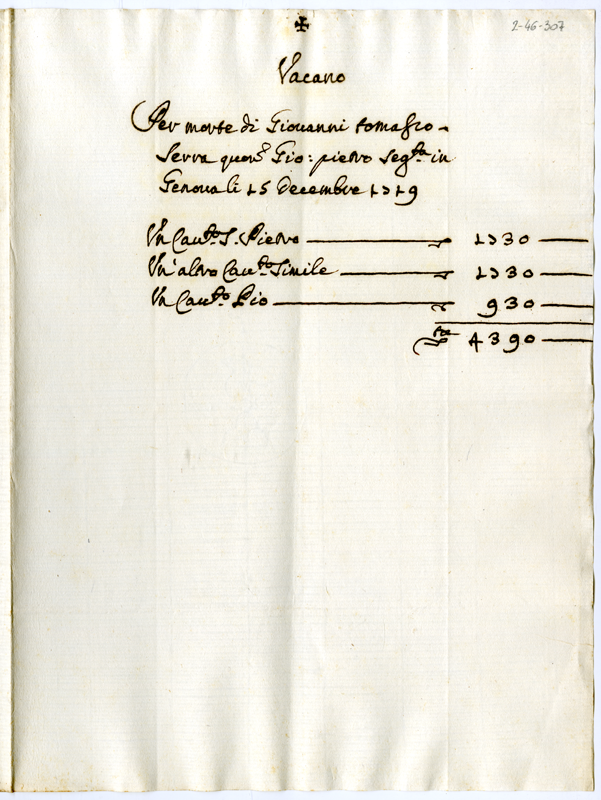 2-46-307
✠
Vacano
Per morte di Giouanni tomasso
Serra quon.m Gio: pietro seg.ta in
Genoua li 15 decembre 1719
Vn Cau.to S. Pietro 1730
Vn'altro Cau.to Simile 1730
Vn Cau.to Pio 930
4390